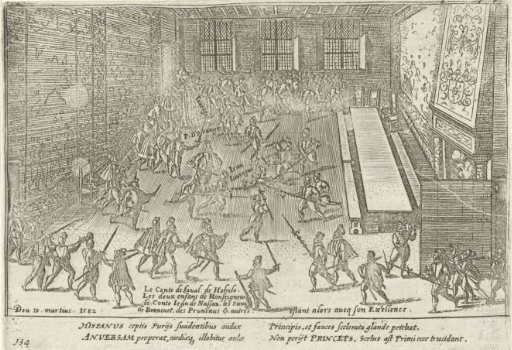 P. D'orange
Iean
Le Conte de Laval, de Hohelo
Les deux enfans de Monseigneur
de Conte Iean de Nassau, les Seign.
de Bonnovet, des Pruneaus & autres
estant alors aveq son Exelence
Den 18. martius. 1582
HISPANUS ceptis Furijs suadentibus audax
ANVERSAM properat, medioq illabitur aule
Principis, et fauces scelerata glande petebat.
Non perijt PRINCEPS, Scelus ast Primi cer trucidant.
154